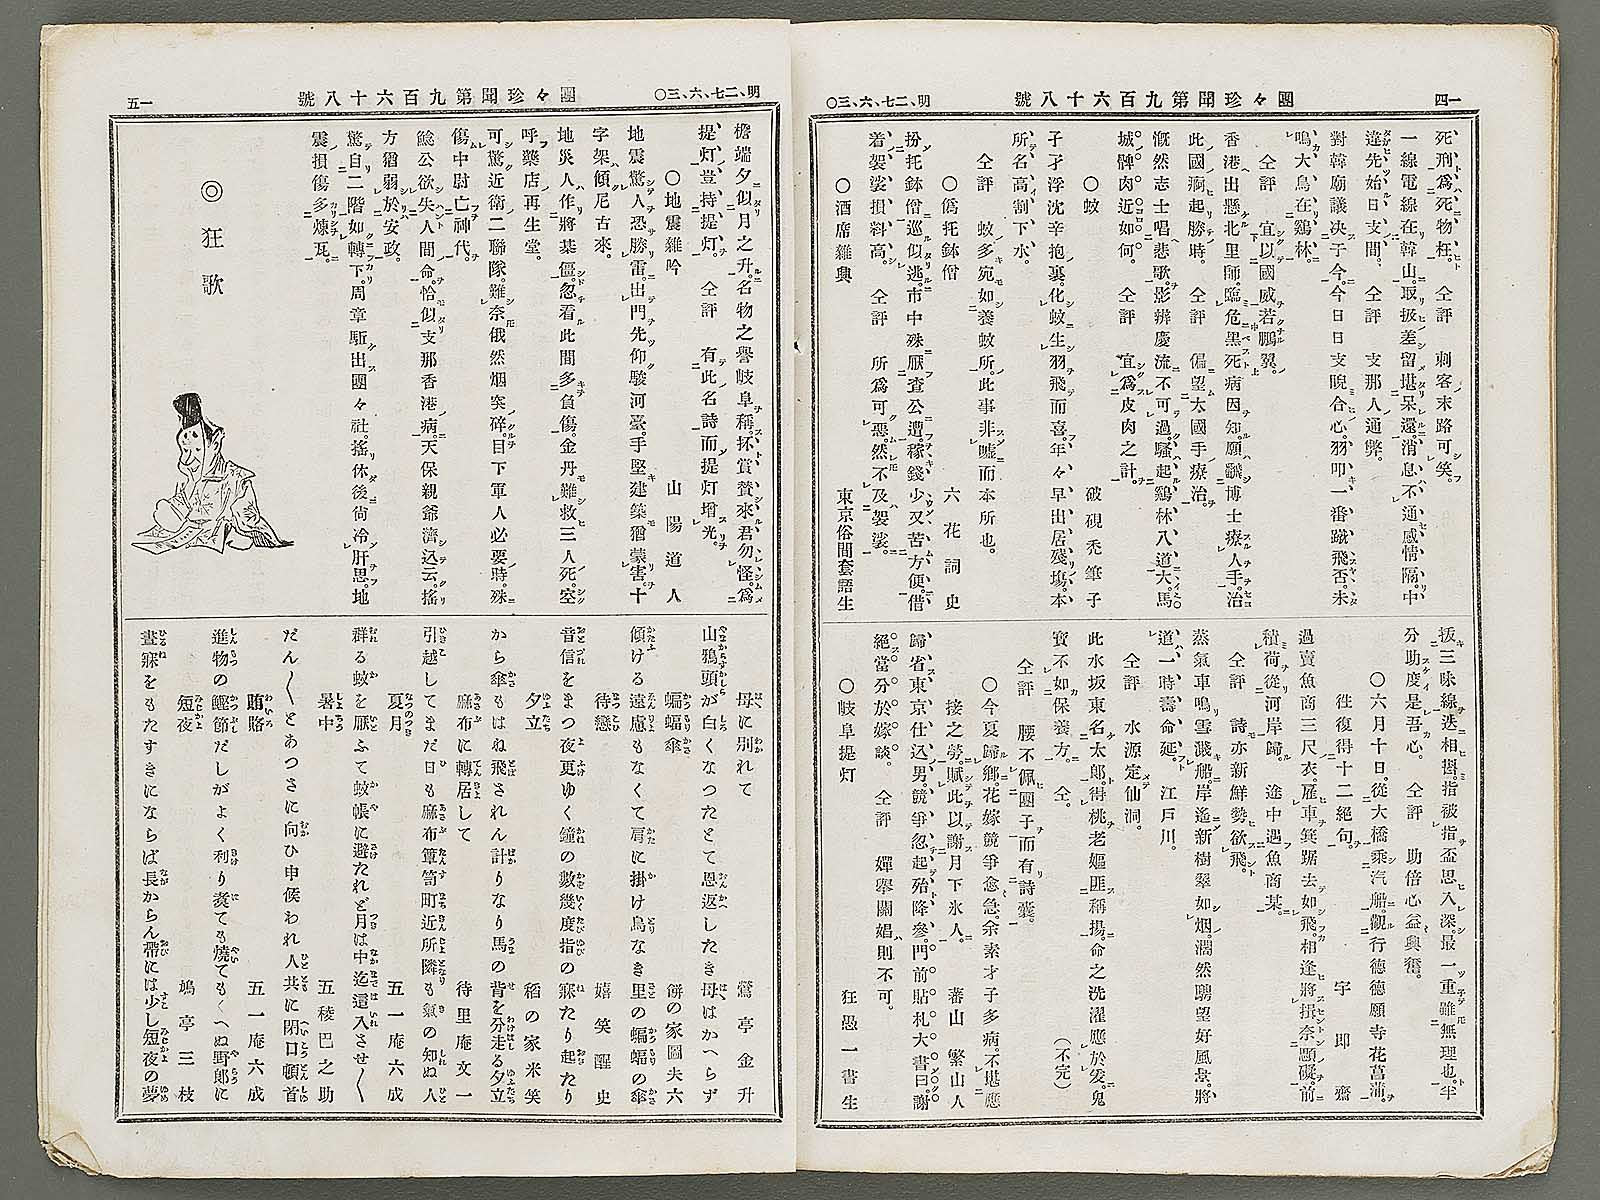 一四
團々珍聞第九百六十八號
明、二七、六、三〇
死刑爲死物枉。仝評　刺客末路可笑。
一線電線在韓山。取扱差留堪呆還。消息不通感情隔。中
違先始日支間、仝評　支那人通弊。
對韓廟議決于今。今日日支睨合心。羽叩一番蹴飛否。未
鳴大鳥在鷄林。
仝評　宜以國威若鵬翼。
香港出懸北里師。臨危黑死病因知。願
博士療人手。治
此國痾起勝時。仝評　偏望大國手療治。
慨然志士唱悲歌。影辨慶流不可過。騷起鷄林八道大。馬
城髀肉近如何。仝評　宜爲皮肉之計。
〇蚊　破硯禿筆子
孑孑浮沈辛抱裏。化蚊生羽飛而喜。年々早出居殘塲。本
所名高割下水。
仝評　蚊多宛如養蚊所。此事非噓而本所也。
〇僞托鉢僧　六花詞史
扮托鉢僧巡似逃。市中殊厭査公遭。稼錢少又苦方便。借
着袈裟損料高。仝評　所爲可惡。然不及袈裟。
〇酒席雜興　東京俗間套語生
扱三味線迭相
。指被指盃思入深。最一重雖無理也。半
分助度是吾心。仝評　助倍心益興奮。
〇六月十日。從大橋乘汽船。觀行德德願寺花菖蒲。
往復得十二絕句。　宇即齋
過賣魚商三尺衣。雁車箕踞去如飛。相逢將揖奈顯礙。前
積荷從河岸歸。　途中遇魚商某。
仝評　詩亦新鮮勢欲飛。
蒸氣車鳴雪濺船。岸遙新樹翠如烟。濶然聘望好風景。將
道一時壽命延。　江戶川。
仝評　水源定仙洞。
此水坂東名太郎。得桃老嫗匪稱揚。命之洗濯應於爰。鬼
寳不如保養方。仝。　（不完）
仝評　腰不佩團子而有詩囊。
〇今夏歸鄕。花嫁競爭愈急。余素才子多病不堪應
接之勞。賦此以謝月下氷人。　蕃山繁山人
歸省東京仕込男。競爭忽起殆降參。門前貼札大書曰。謝
絕當分於嫁談。仝評　嬋擧關娼則不可。
〇岐阜提灯　狂愚一書生
明、二七、六、三〇
團々珍聞第九百六十八號
一五
檐端夕似月之升。名物之譽岐阜稱。抔賞賛來君勿怪。爲
提灯豈持提灯。仝評　有此名詩而提灯增光。
〇地震雜吟　山陽道人
地震驚人恐勝雷。出門先仰駿河臺。手堅建築猶蒙害。十
字架傾尼古來。
地災人作將棊僵。忽看此間多負傷。金丹難救三人死。空
呼藥店再生堂。
可驚近衛二聯隊。難奈俄然烟突碎。目下軍人必要時。殊
傷中尉亡神代。
鯰公欲失人間命。恰似支那香港病。天保親爺濟込云。搖
方猶弱於安政。
驚自二階如轉下。周章駈出團々社。搖休後尙冷肝思。地
震損傷多煉瓦。
◎狂歌
母に別れて　鶯亭金升
山鴉頭が白くなつたとて恩返したき母はかへらず
蝙蝠傘　餅の家圖夫六
傾ける遠慮もなくて肩に掛け鳥なき里の蝙蝠の傘
待戀　嬉笑醒史
音信をまつ夜更ゆく鐘の數幾度指の寐たり起たり
夕立　稻の家米笑
から傘もはね飛されん計りなり馬の背を分走る夕立
麻布に轉居して　待里庵文一
引越してまだ日も麻布簞笥町近所隣も氣の知ぬ人
夏月　五一庵六成
群る蚊を厭ふて蚊帳に避たれど月は中迄這入させ〱
暑中　五稜巴之助
だん〱とあつさに向ひ申候われ人共に閉口頓首
賄賂　五一庵六成
進物の鰹節だしがよく利り煑ても燒てもくへぬ野郎に
短夜　鳩亭三枝
晝寐をもたすきにならば長からん帶には少し短夜の夢